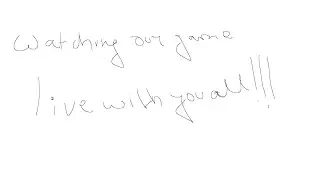 Watching our game
live with you all!!!